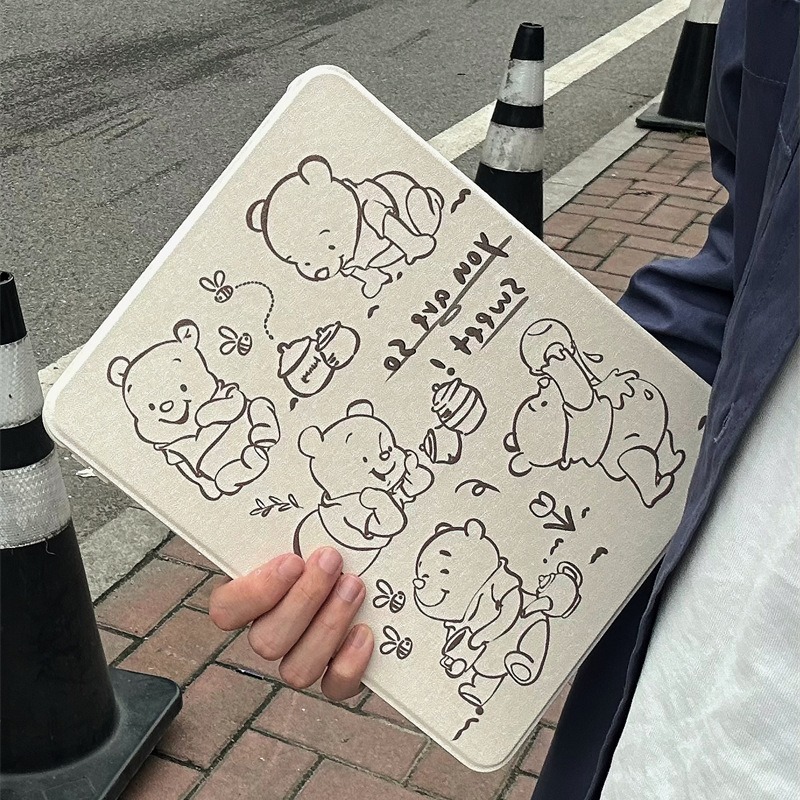 You are so
sweet